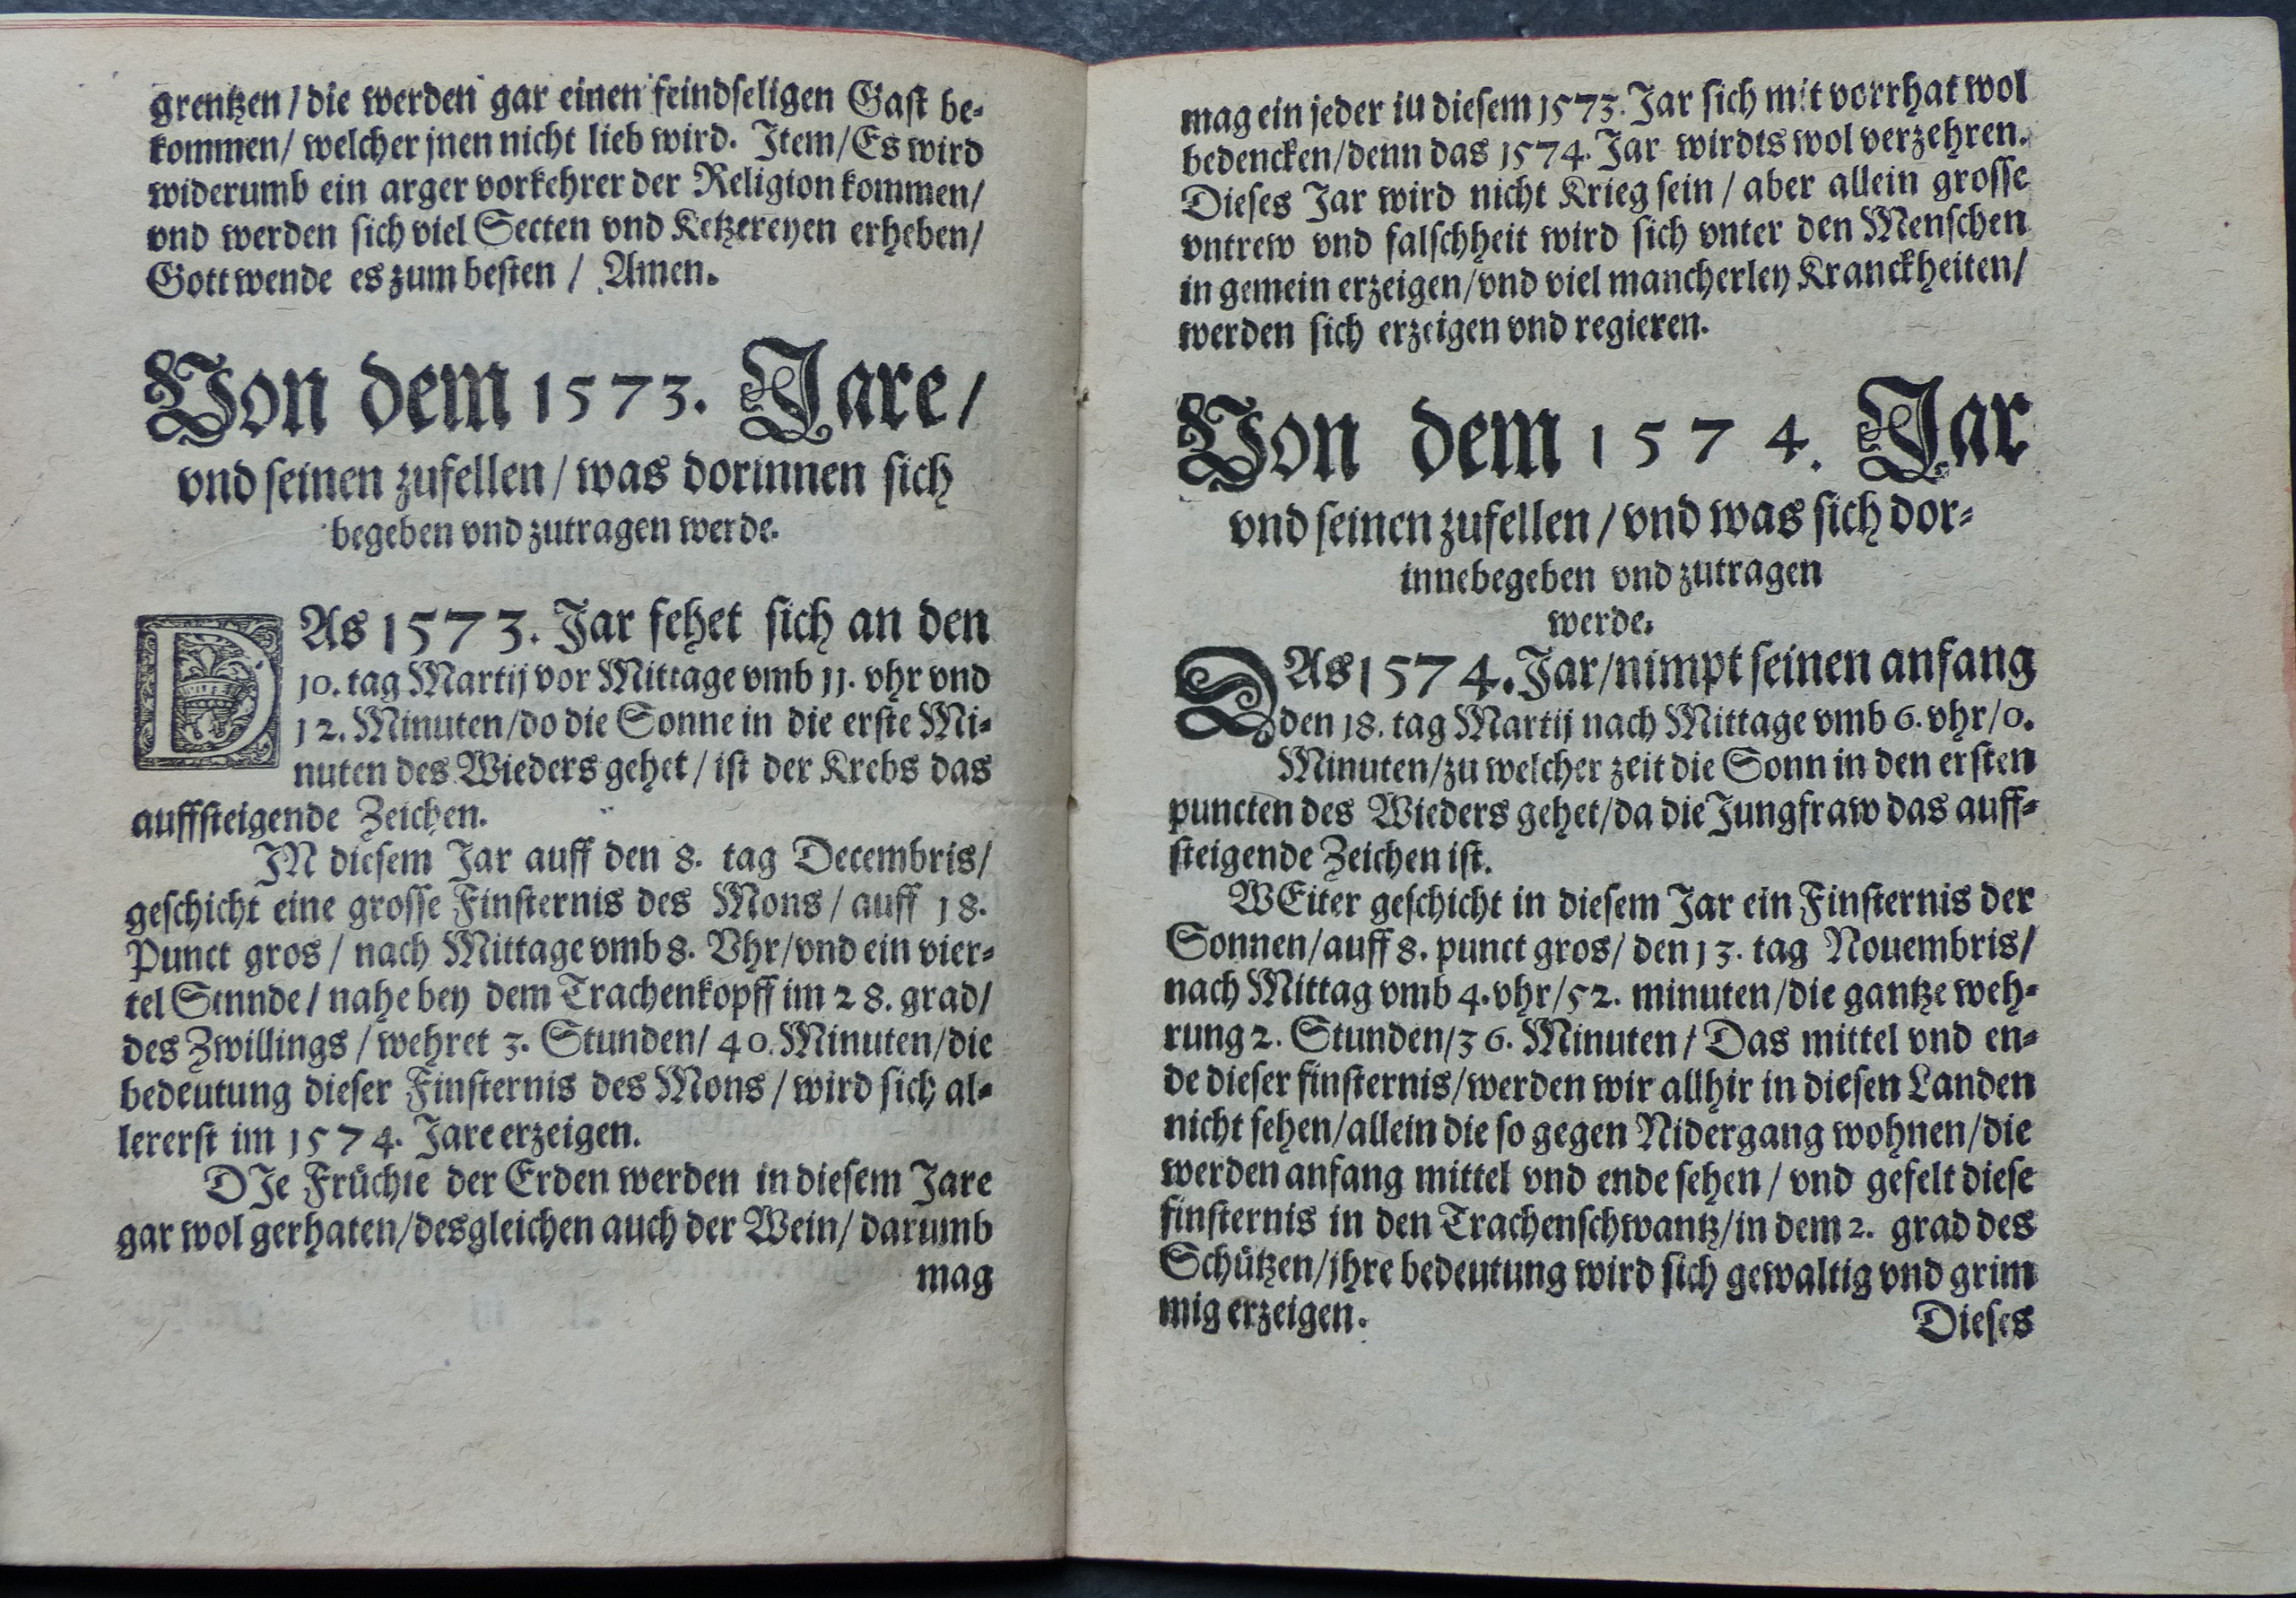 grentzen / die werden gar einen feindseligen Gast be-
kommen / welcher jnen nicht lieb wird. Item / Es wird
widerumb ein arger vorkehrer der Religion kommen /
vnd werden sich viel Secten vnd Ketzereyen erheben /
Gott wende es zum besten / Amen.
Von dem 1573. Jare /
vnd seinen zufellen / was dorinnen sich
begeben vnd zutragen werde.
DAs 1573. Jar fehet sich an den
10. tag Martij vor Mittage vmb 11. vhr vnd
12. Minuten / do die Sonne in die erste Mi-
nuten des Wieders gehet / ist der Krebs das
auffsteigende Zeichen.
IN diesem Jar auff den 8. tag Decembris /
geschicht eine grosse Finsternis des Mons / auff 18.
Punct gros / nach Mittage vmb 8. Vhr / vnd ein vier-
tel Stnnde / nahe bey dem Trachenkopff im 28. grad /
des Zwillings / wehret 3. Stunden / 40. Minuten / die
bedeutung dieser Finsternis des Mons / wird sich al-
lererst im 1574. Jare erzeigen.
DIe Früchte der Erden werden in diesem Jare
gar wol gerhaten / desgleichen auch der Wein / darumb
mag
mag ein jeder in diesem 1573. Jar sich mit vorrhat wol
bedencken / denn das 1574. Jar wirdts wol verzehren.
Dieses Jar wird nicht Krieg sein / aber allein grosse
vntrew vnd falschheit wird sich vnter den Menschen
in gemein erzeigen / vnd viel mancherley Kranckheiten /
werden sich erzeigen vnd regieren.
Von dem 1574. Jar
vnd seinen zufellen / vnd was sich dor-
innebegeben vnd zutragen
werde.
DAs 1574. Jar / nimpt seinen anfang
den 18. tag Martij nach Mittage vmb 6. vhr / 0.
Minuten / zu welcher zeit die Sonn in den ersten
puncten des Wieders gehet / da die Jungfraw das auff-
steigende Zeichen ist.
WEiter geschicht in diesem Jar ein Finsternis der
Sonnen / auff 8. punct gros / den 13. tag Nouembris /
nach Mittag vmb 4. vhr / 52. minuten / die gantze weh-
rung 2. Stunden / 36. Minuten / Das mittel vnd en-
de dieser finsternis / werden wir allhir in diesen Landen
nicht sehen / allein die so gegen Nidergang wohnen / die
werden anfang mittel vnd ende sehen / vnd gefelt diese
finsternis in den Trachenschwantz / in dem 2. grad des
Schützen / jhre bedeutung wird sich gewaltig vnd grim
mig erzeigen.
Dieses